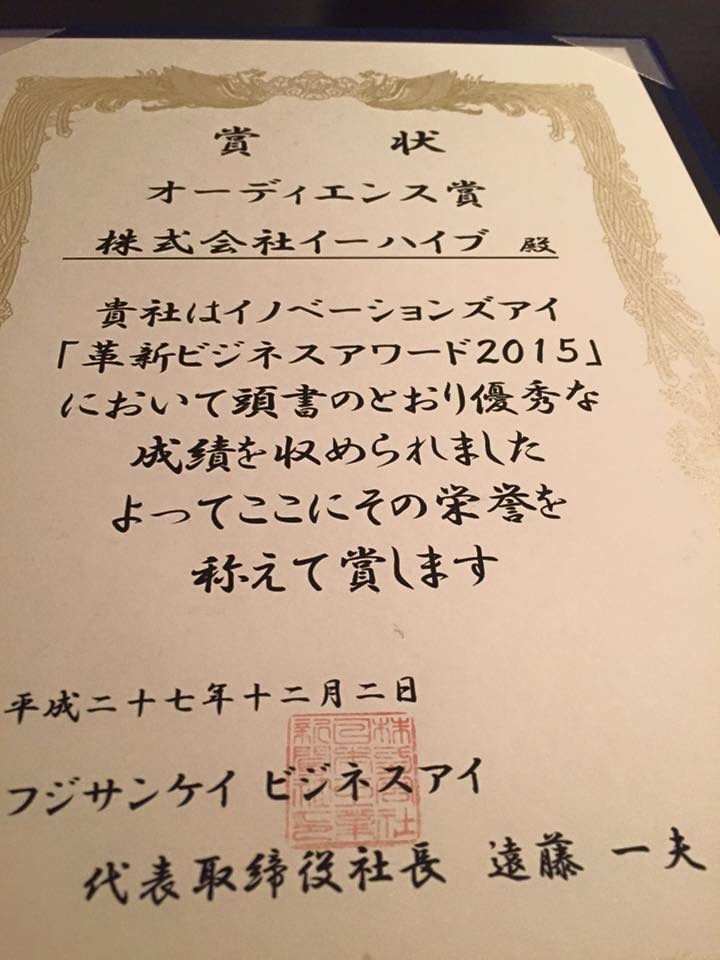 賞 状
オーディエンス賞
株式会社イーハイブ 殿
貴社はイノベーションズアイ
「革新ビジネスアワード2015」
において頭書のとおり優秀な
成績を収められました
よってここにその栄誉を
称えて賞します
平成二十七年十二月二日
フジサンケイ ビジネスアイ
代表取締役社長 遠藤 一夫